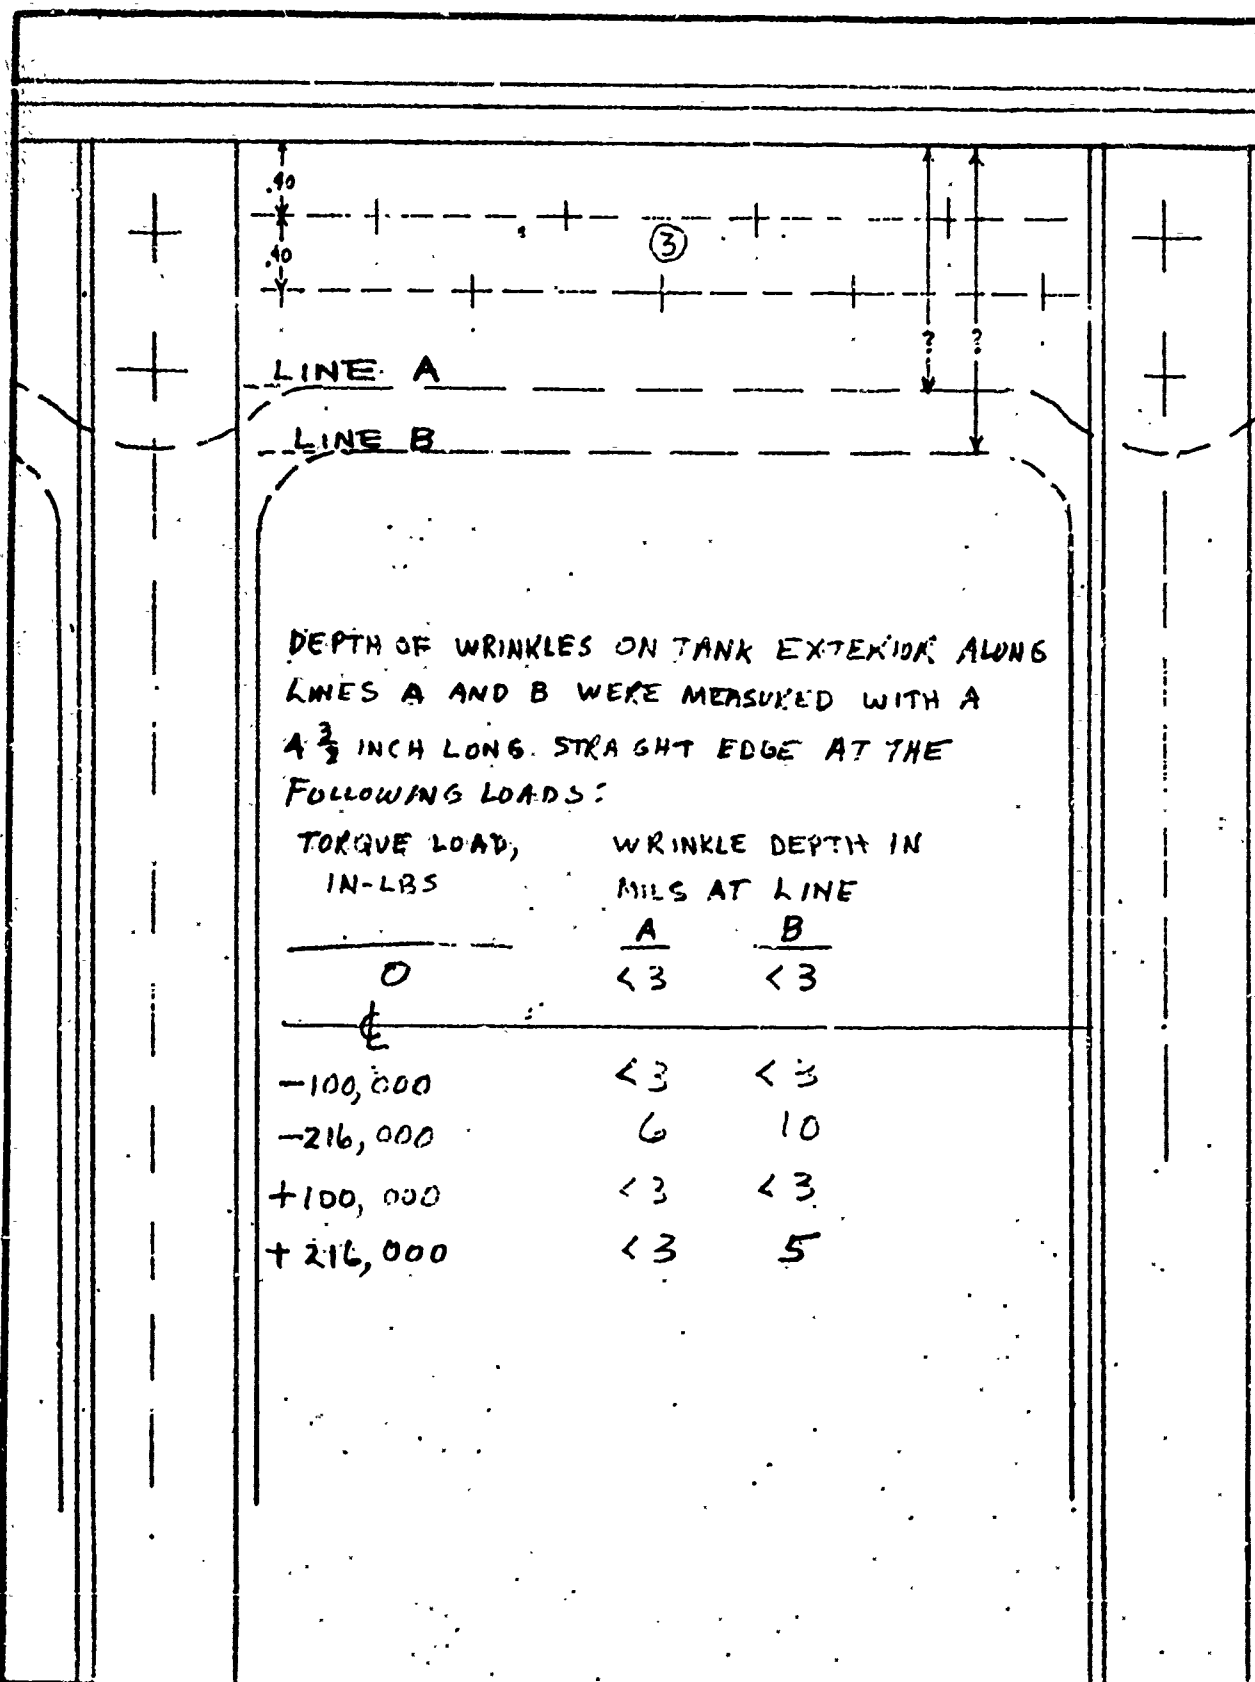 .40
.40
③
? ?
LINE A
LINE B
DEPTH OF WRINKLES ON TANK EXTERIOR ALONG
LINES A AND B WERE MEASURED WITH A
INCH LONG. STRAIGHT EDGE AT THE
FOLLOWING LOADS:
TORQUE LOAD, WRINKLE DEPTH IN
IN-LBS MILS AT LINE
A B
0 <3 <3
℄
-100,000 <3 <3
-216,000 6 10
+100,000 <3 <3
+216,000 <3 5